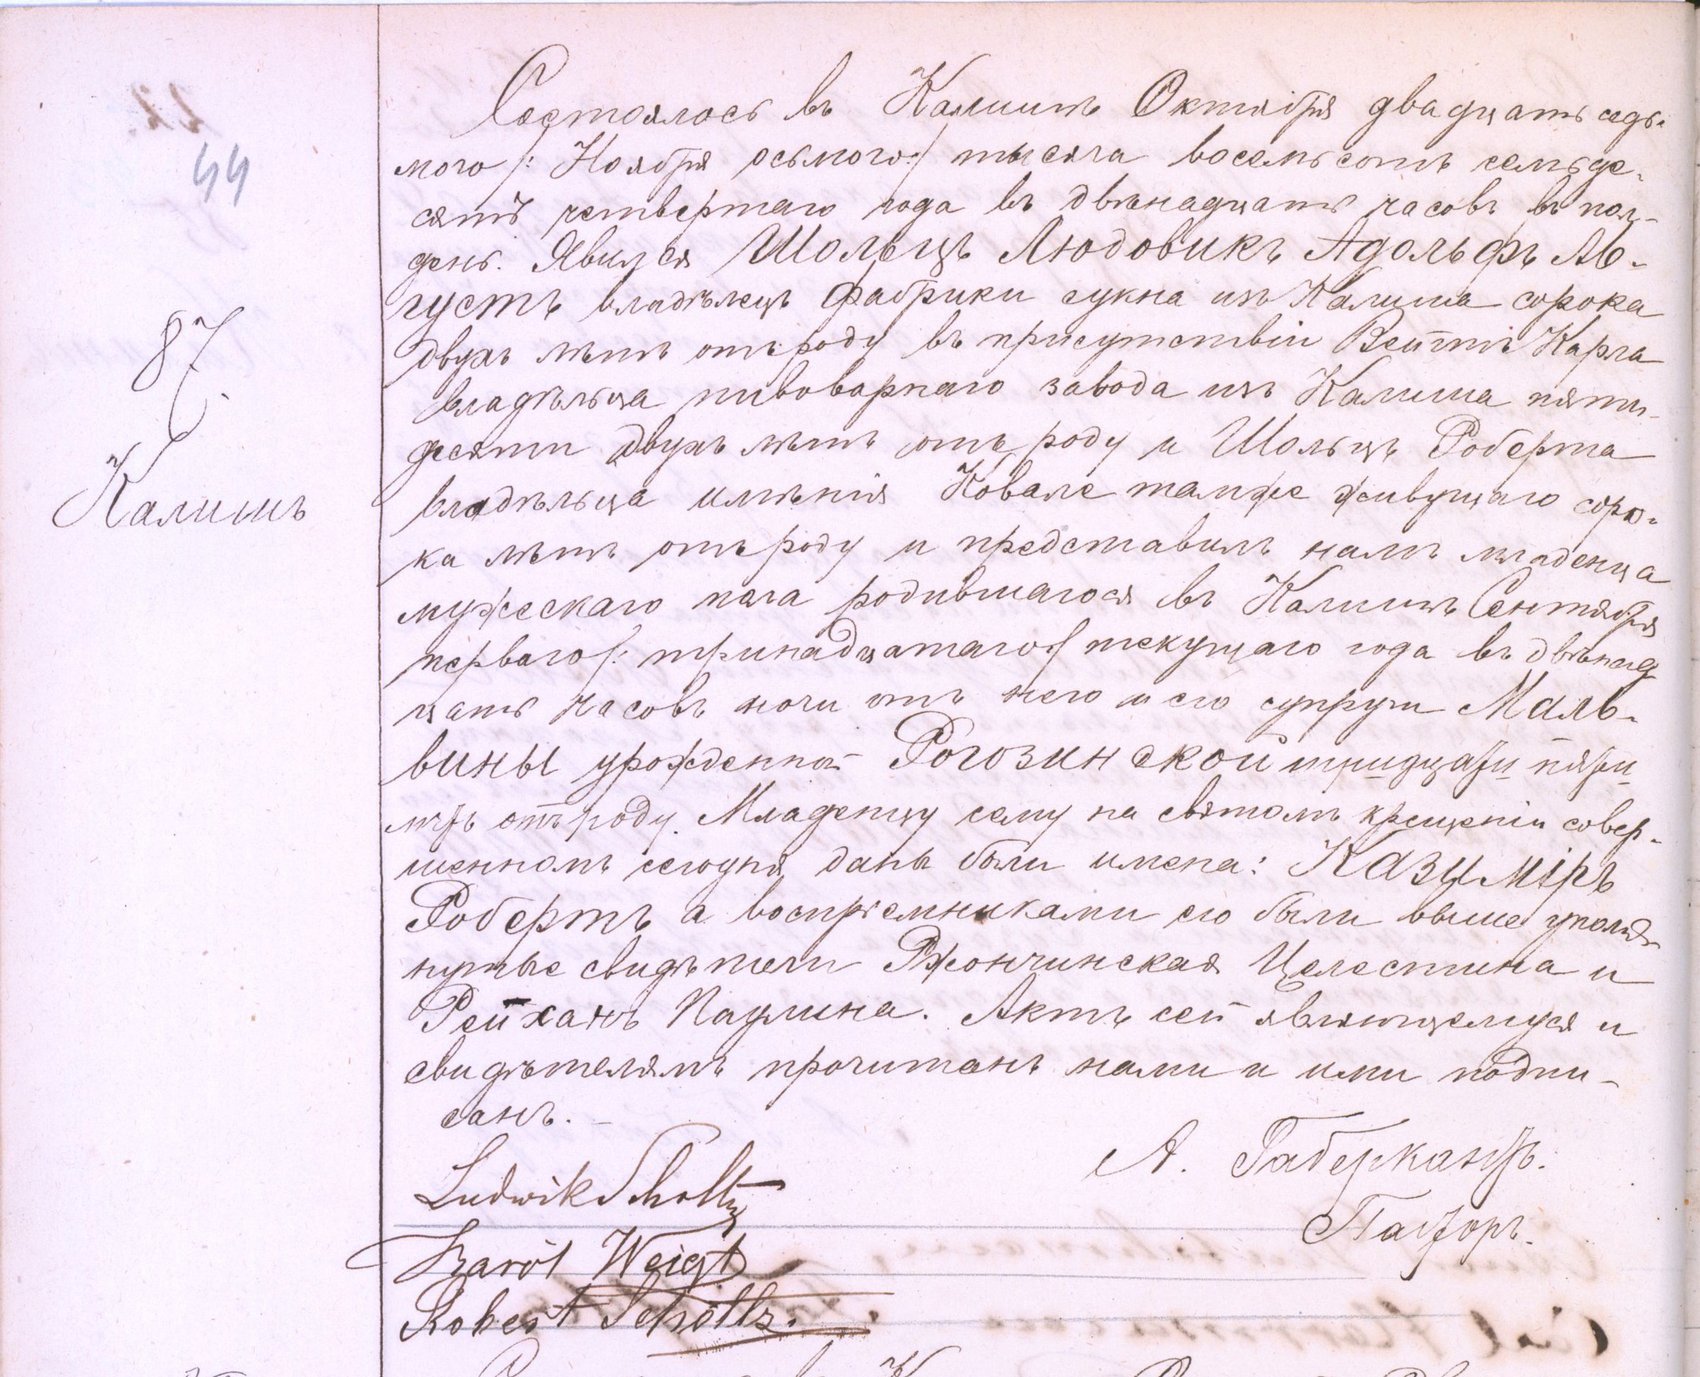 44
87.
Калишъ
Состоялось въ Калишѣ Октября двадцать седь-
мого /: Ноября осьмого :/ тысяча восемьсотъ семьде-
сятъ четвертаго года въ двѣнадцать часовъ въ пол-
день. Явился Шольцъ Людовикъ Адольфъ Ав-
густъ владѣлецъ фабрики сукна изъ Калиша сорока
двухъ лѣтъ отъ роду въ присутствіи Вейгтъ Карла
владѣльца пивоварнаго завода изъ Калиша пяти-
десяти двухъ лѣтъ отъ роду и Шольцъ Роберта
владѣльца имѣнія Ковале тамже живущаго соро-
ка лѣтъ отъ роду и представилъ намъ младенца
мужескаго пола родившагося въ Калишѣ Сентября
перваго /: тринадцатаго :/ текущаго года въ двѣнад
цать часовъ ночи отъ него и его супруги Маль-
вины урожденной Рогозинской тридцати пяти
лѣтъ отъ роду. Младенцу сему на святомъ крещеніи совер-
шенномъ сегодня даны были имена: Казиміръ
Робертъ а воспріемниками его были выше упомя-
нутые свидѣтели Ржончинская Целестина и
Рейханъ Паулина. Актъ сей являющемуся и
свидѣтелямъ прочитанъ нами и ими подпи-
санъ. -
А. Габеркантъ.
Пасторъ.
Ludwik Scholtz
Karol Weigt
Robert Scholtz.